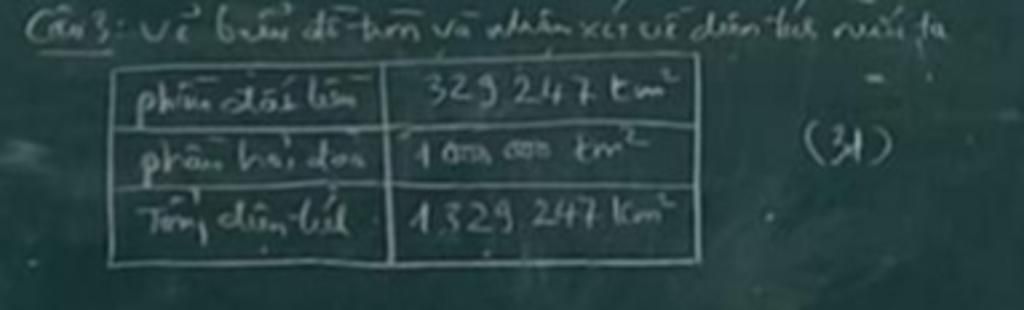 Câu 3: Vẽ biểu đồ tròn và nhận xét về diện tích nước ta
phần đất liền 329 247 km²
phần hải đảo 1 000 000 km²
(3đ)
Tổng diện tích 1.329 247 km²